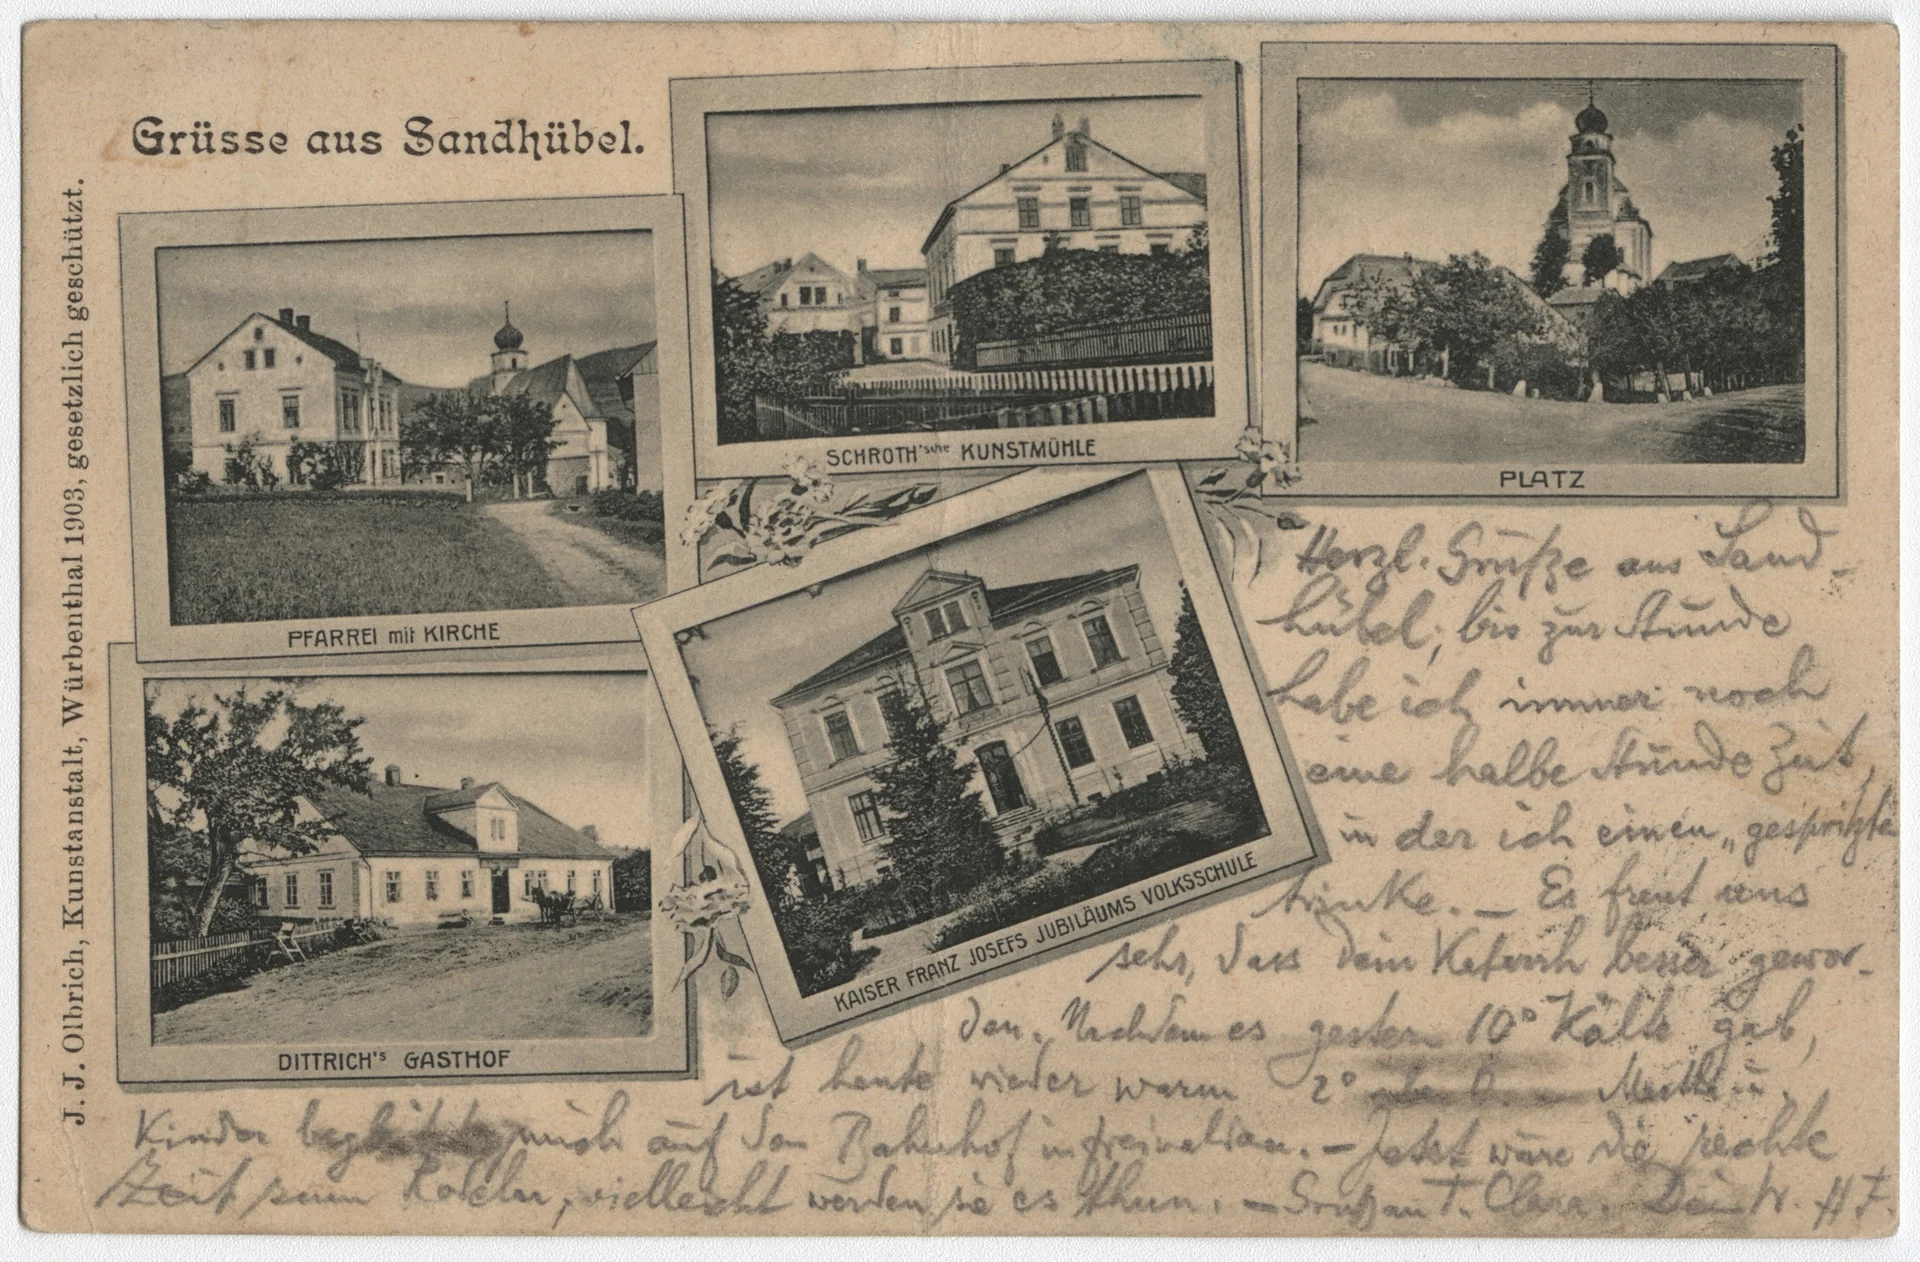 Grüsse aus Sandhübel.
J. J. Olbrich, Kunstanstalt, Würbenthal 1903, gesetzlich geschützt.
SCHROTH'sche KUNSTMÜHLE
PLATZ
PFARREI mit KIRCHE
DITTRICH's GASTHOF
KAISER FRANZ JOSEFS JUBILÄUMS VOLKSSCHULE
Herzl. Grüße aus Sand-
hübel; bis zur Stunde
habe ich immer noch
eine halbe Stunde Zeit,
in der ich einen „gespritzte
trinke. – Es freut uns
sehr, dass dein Katarrh besser gewor-
den. Nachdem es gestern 10° Kälte gab,
ist heute wieder warm 2°
Kinder begleiteten mich auf den Bahnhof in Freiwaldau. – Jetzt wäre die rechte
Zeit zum Rodeln, vielleicht werden sie es thun. – Gruß an T. Clara. Dein